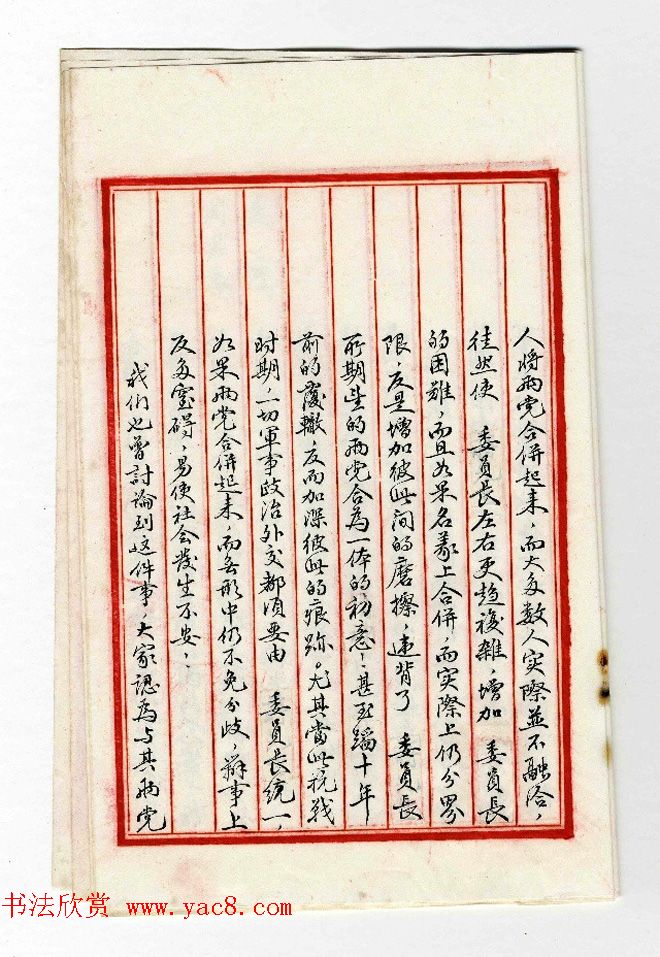 人将両党合併起来，而大多数人实際並不融洽，
徒然使　委員長左右更趋複雜，增加　委員長
的困難，而且如果名義上合併，而实際上仍分界
限，反是增加彼此间的磨擦，违背了　委員長
所期望的両党合為一体的初意；甚至蹈十年
前的覆轍，反而加深彼此的痕跡。尤其當此抗战
时期，一切軍事政治外交都须要由　委員長統一，
如果両党合併起来，而無形中仍不免分歧，辦事上
反多窒碍，易使社会发生不安；
我们也曾討論到这件事，大家認為与其両党
书法欣赏 www.yac8.com